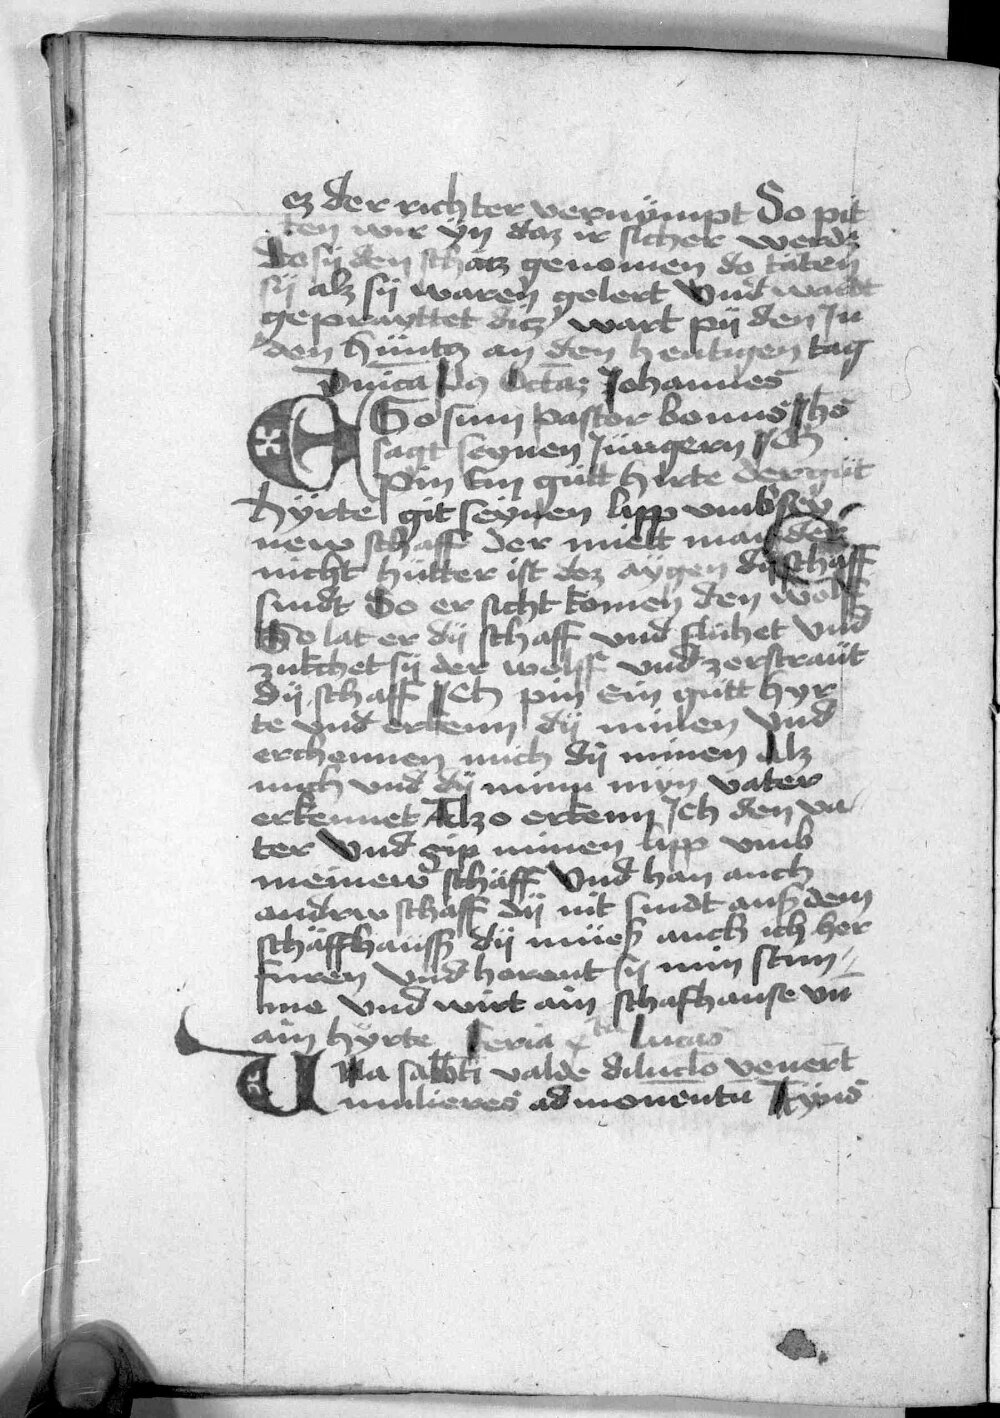 ez der richter vernÿmpt So pit
ten wir ÿn daz ir sicher werdz
Do sÿ den schatz genomen do täten
sÿ alz sÿ waren gelert Vnd wart
geprayttet diz wart pÿ den Ju
den hüntz an den heutigen tag
Dnica Octaz Johannes
EGo sum pastor bonus Jhs
sagt seynen Jüngern Ich
pin ein gütt hirte der güt
hÿrte git seynen lipp vmb sey
new schaff Der miett man der
nicht hütter ist dez aÿgen dÿ schaff
sindt So er sicht komen den wolff
So lat er dÿ schaff vnd fluhet Vnd
zukchet sÿ der wolff vnd zerstraüt
dÿ schaff Ich pin ein gütt hyr
te vnd erkenn dÿ minen Vnd
erchennen mich dÿ minen Alz
mich vnd dÿ minn myn vater
erkennet Alzo erkenn Ich den va
ter Vnd gip minen lipp vmb
meinew schäff Vnd han auch
andrw schäff dÿ nit sindt auß dem
schäffhauss dÿ müeß auch ich her
furen Vnd horent sÿ min stim
me Vnd wirt ain schafhause vn̄
ain hÿrte feria Lucas
Vna sabbti valde diluclo venert̄
mulieres ad monentū Kyns